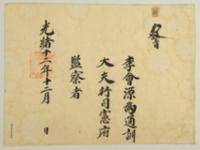 李會源爲通訓
大夫行司憲府
監察者
光緖十二年十二月 日